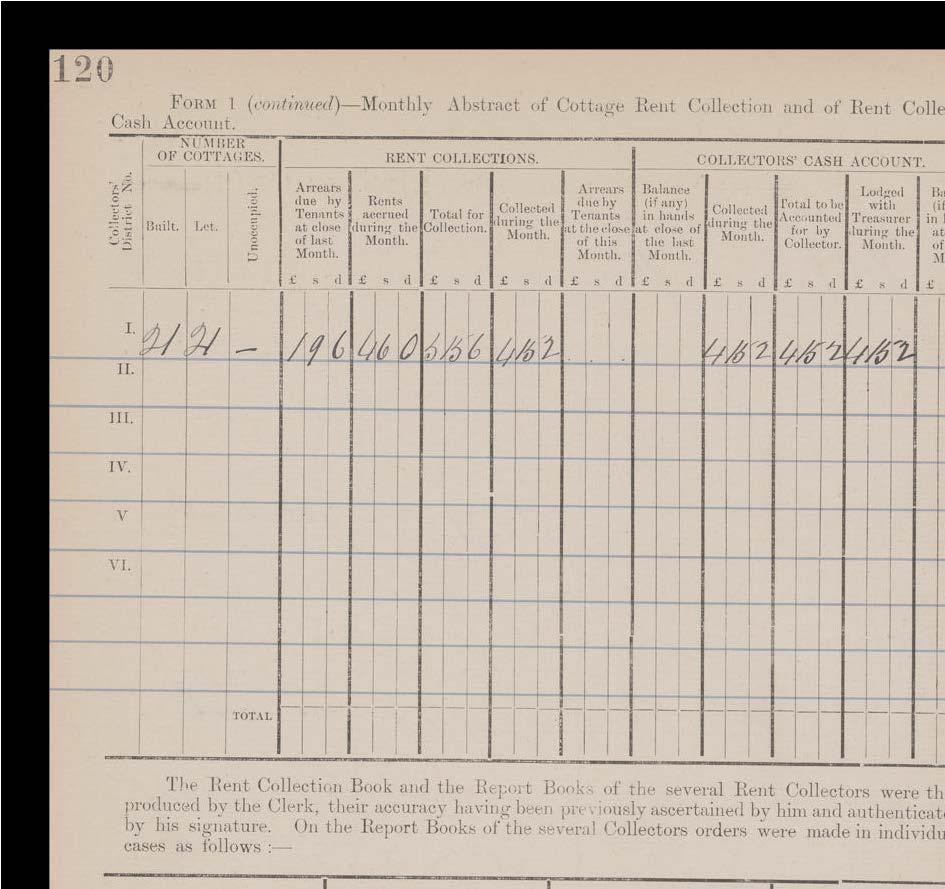 120
FORM 1 (continued)—Monthly Abstract of Cottage Rent Collection and of Rent Colle
Cash Account.
Collectors' District No.
NUMBER
OF COTTAGES.
Built.
Let.
Unoccupied.
RENT COLLECTIONS.
Arrears
due by
Tenants
at close
of last
Month.
£ s d
Rents
accrued
during the
Month.
£ s d
Total for
Collection.
£ s d
Collected
during the
Month.
£ s d
Arrears
due by
Tenants
at the close
of this
Month.
£ s d
COLLECTORS' CASH ACCOUNT.
Balance
(if any)
in hands
at close of
the last
Month.
£ s d
Collected
during the
Month.
£ s d
Total to be
Accounted
for by
Collector.
£ s d
Lodged
with
Treasurer
during the
Month.
£ s d
Ba
(if
in
at
of
M
£
I. 21 21 – 1 9 6 4 6 0 5 15 6 4 15 2 . . . 4 15 2 4 15 2 4 15 2
II.
III.
IV.
V
VI.
TOTAL
The Rent Collection Book and the Report Books of the several Rent Collectors were th
produced by the Clerk, their accuracy having been previously ascertained by him and authenticat
by his signature. On the Report Books of the several Collectors orders were made in individu
cases as follows :—